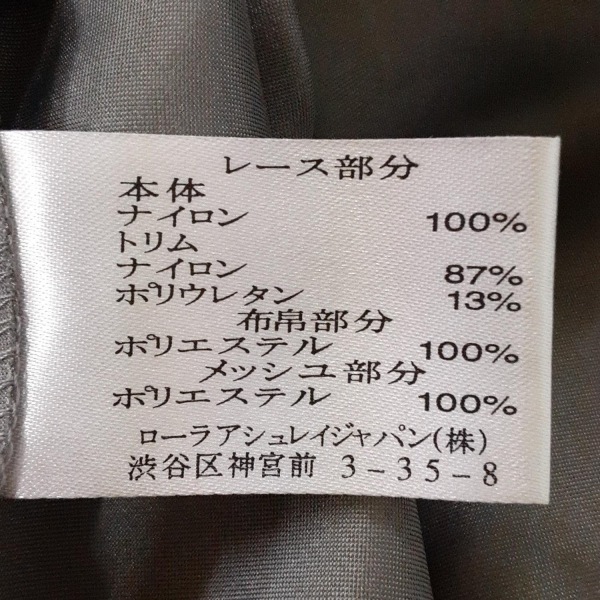 レース部分
本体
ナイロン 100%
トリム
ナイロン 87%
ポリウレタン 13%
布帛部分
ポリエステル 100%
メッシュ部分
ポリエステル 100%
ローラアシュレイジャパン(株)
渋谷区神宮前 3-35-8